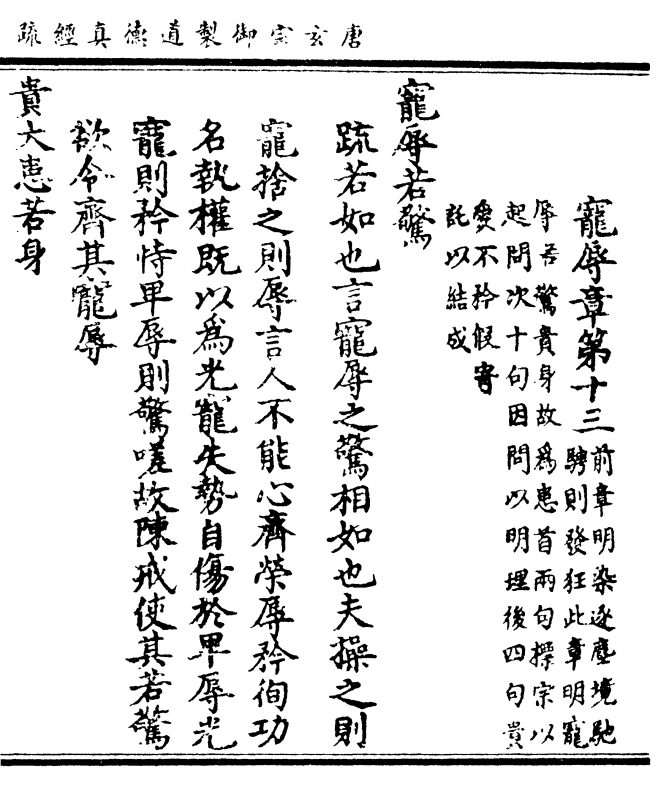 唐玄宗御製道德真經疏
寵辱章第十三前章明染逐塵境馳
騁則發狂此章明寵
辱若驚貴身故為患首兩句摽宗以
起問次十句因問以明理後四句貴
愛不矜假寄
託以結成
寵辱若驚
疏若如也言寵辱之驚相如也夫操之則
寵捨之則辱言人不能心齊榮辱矜徇功
名執權既以為光寵失勢自傷於卑辱光
寵則矜恃卑辱則驚嗟故陳戒使其若驚
欲令齊其寵辱
貴大患若身